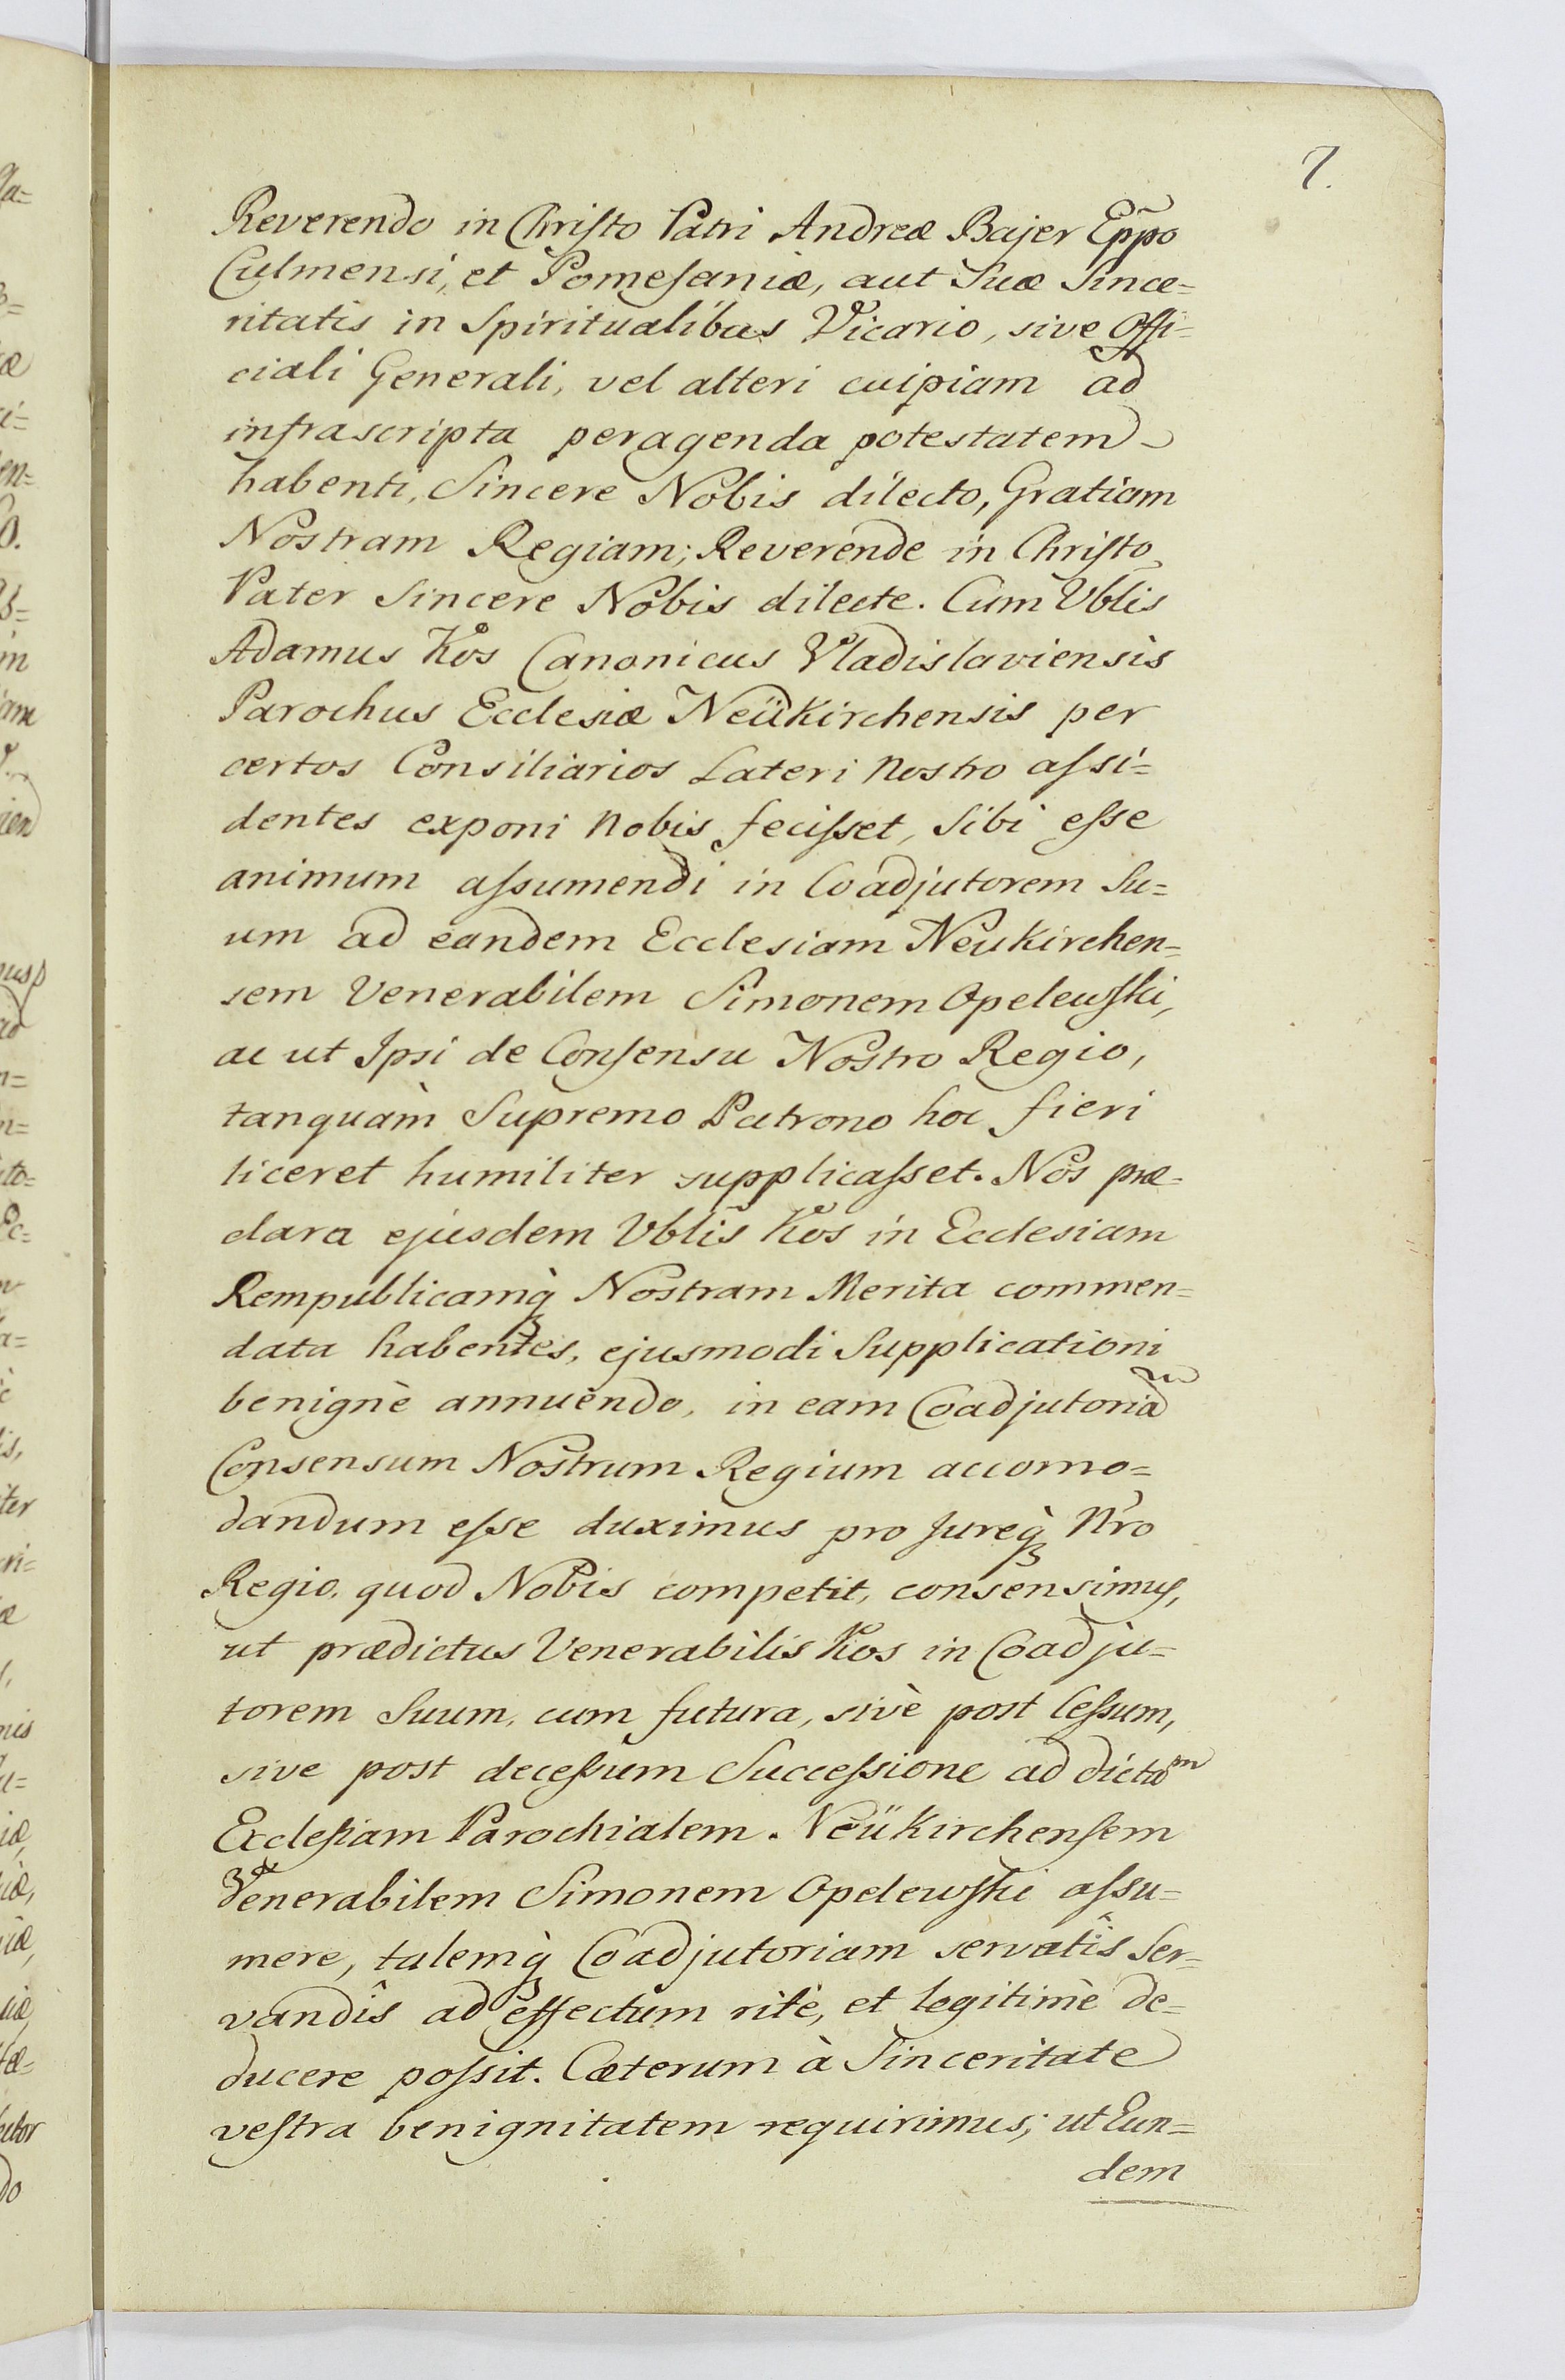 7.
Reverendo in Christo Patri Andreæ Bajer Epp̃o
Culmensi, et Pomesaniæ, aut Suæ Since=
ritatis in Spiritualibus Vicario, sive Offi=
ciali Generali, vel alteri cuipiam ad
infrascripta peragenda potestatem
habenti, Sincere Nobis dilecto, Gratiam
Nostram Regiam; Reverende in Christo
Pater Sincere Nobis dilecte. Cum Vblis
Adamus Kos Canonicus Vladislaviensis
Parochus Ecclesiæ Neükirchensis per
certos Consiliarios Lateri Nostro assi=
dentes exponi Nobis fecisset, Sibi esse
animum assumendi in Coadjutorem Su=
um ad eandem Ecclesiam Neukirchen=
sem Venerabilem Simonem Opelewski,
ac ut Ipsi de Consensu Nostro Regio,
tanquàm Supremo Patrono hoc fieri
liceret humiliter supplicasset. Nos præ=
clara ejusdem Vblis Kos in Ecclesiam
Rempublicamq̀ Nostram Merita commen=
data habentes, ejusmodi Supplicationi
benignè annuendo, in eam Coadjutoriam
Consensum Nostrum Regium accomo=
dandum esse duximus pro Jureq̀ Nro
Regio, quod Nobis competit, consensimus,
ut prædictus Venerabilis Kos in Coadju=
torem Suum, cum futura, sivè post Cessum,
sive post decessum Successione ad dictam
Ecclesiam Parochialem. Neükirchensem
Venerabilem Simonem Opelewski assu=
mere, talemq̀ Coadjutoriam servatîs Ser=
vandîs ad effectum ritè, et legitimè de=
ducere possit. Cæterum à Sinceritate
vestra benignitatem requirimus; ut Eun=
dem